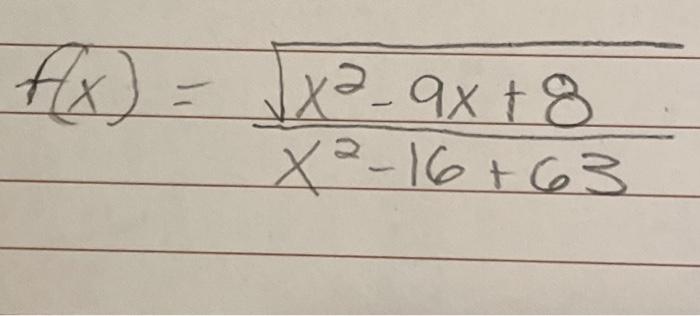 f(x) = √x²-9x+8
x²-16+63